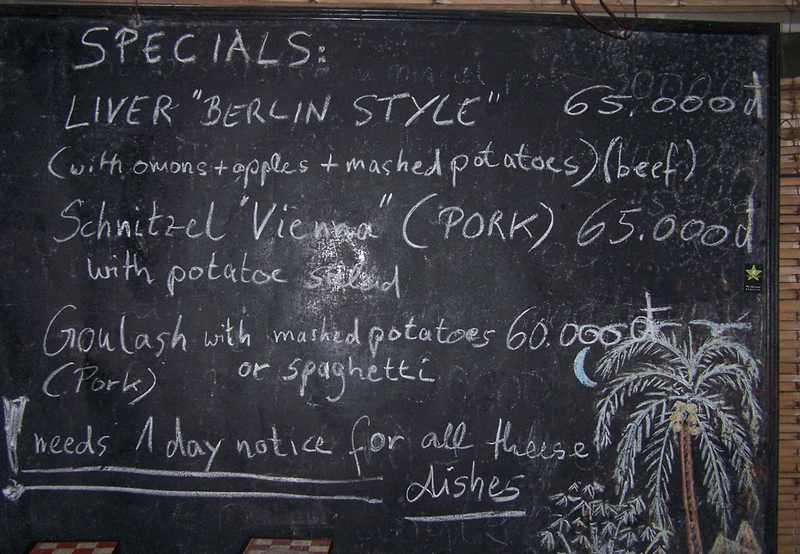 SPECIALS:
LIVER "BERLIN STYLE" 65.000đ
(with onions + apples + mashed potatoes) (beef)
Schnitzel "Vienna" (PORK) 65.000đ
with potatoe salad
Goulash with mashed potatoes 60.000đ
(Pork) or spaghetti
! needs 1 day notice for all theese
dishes